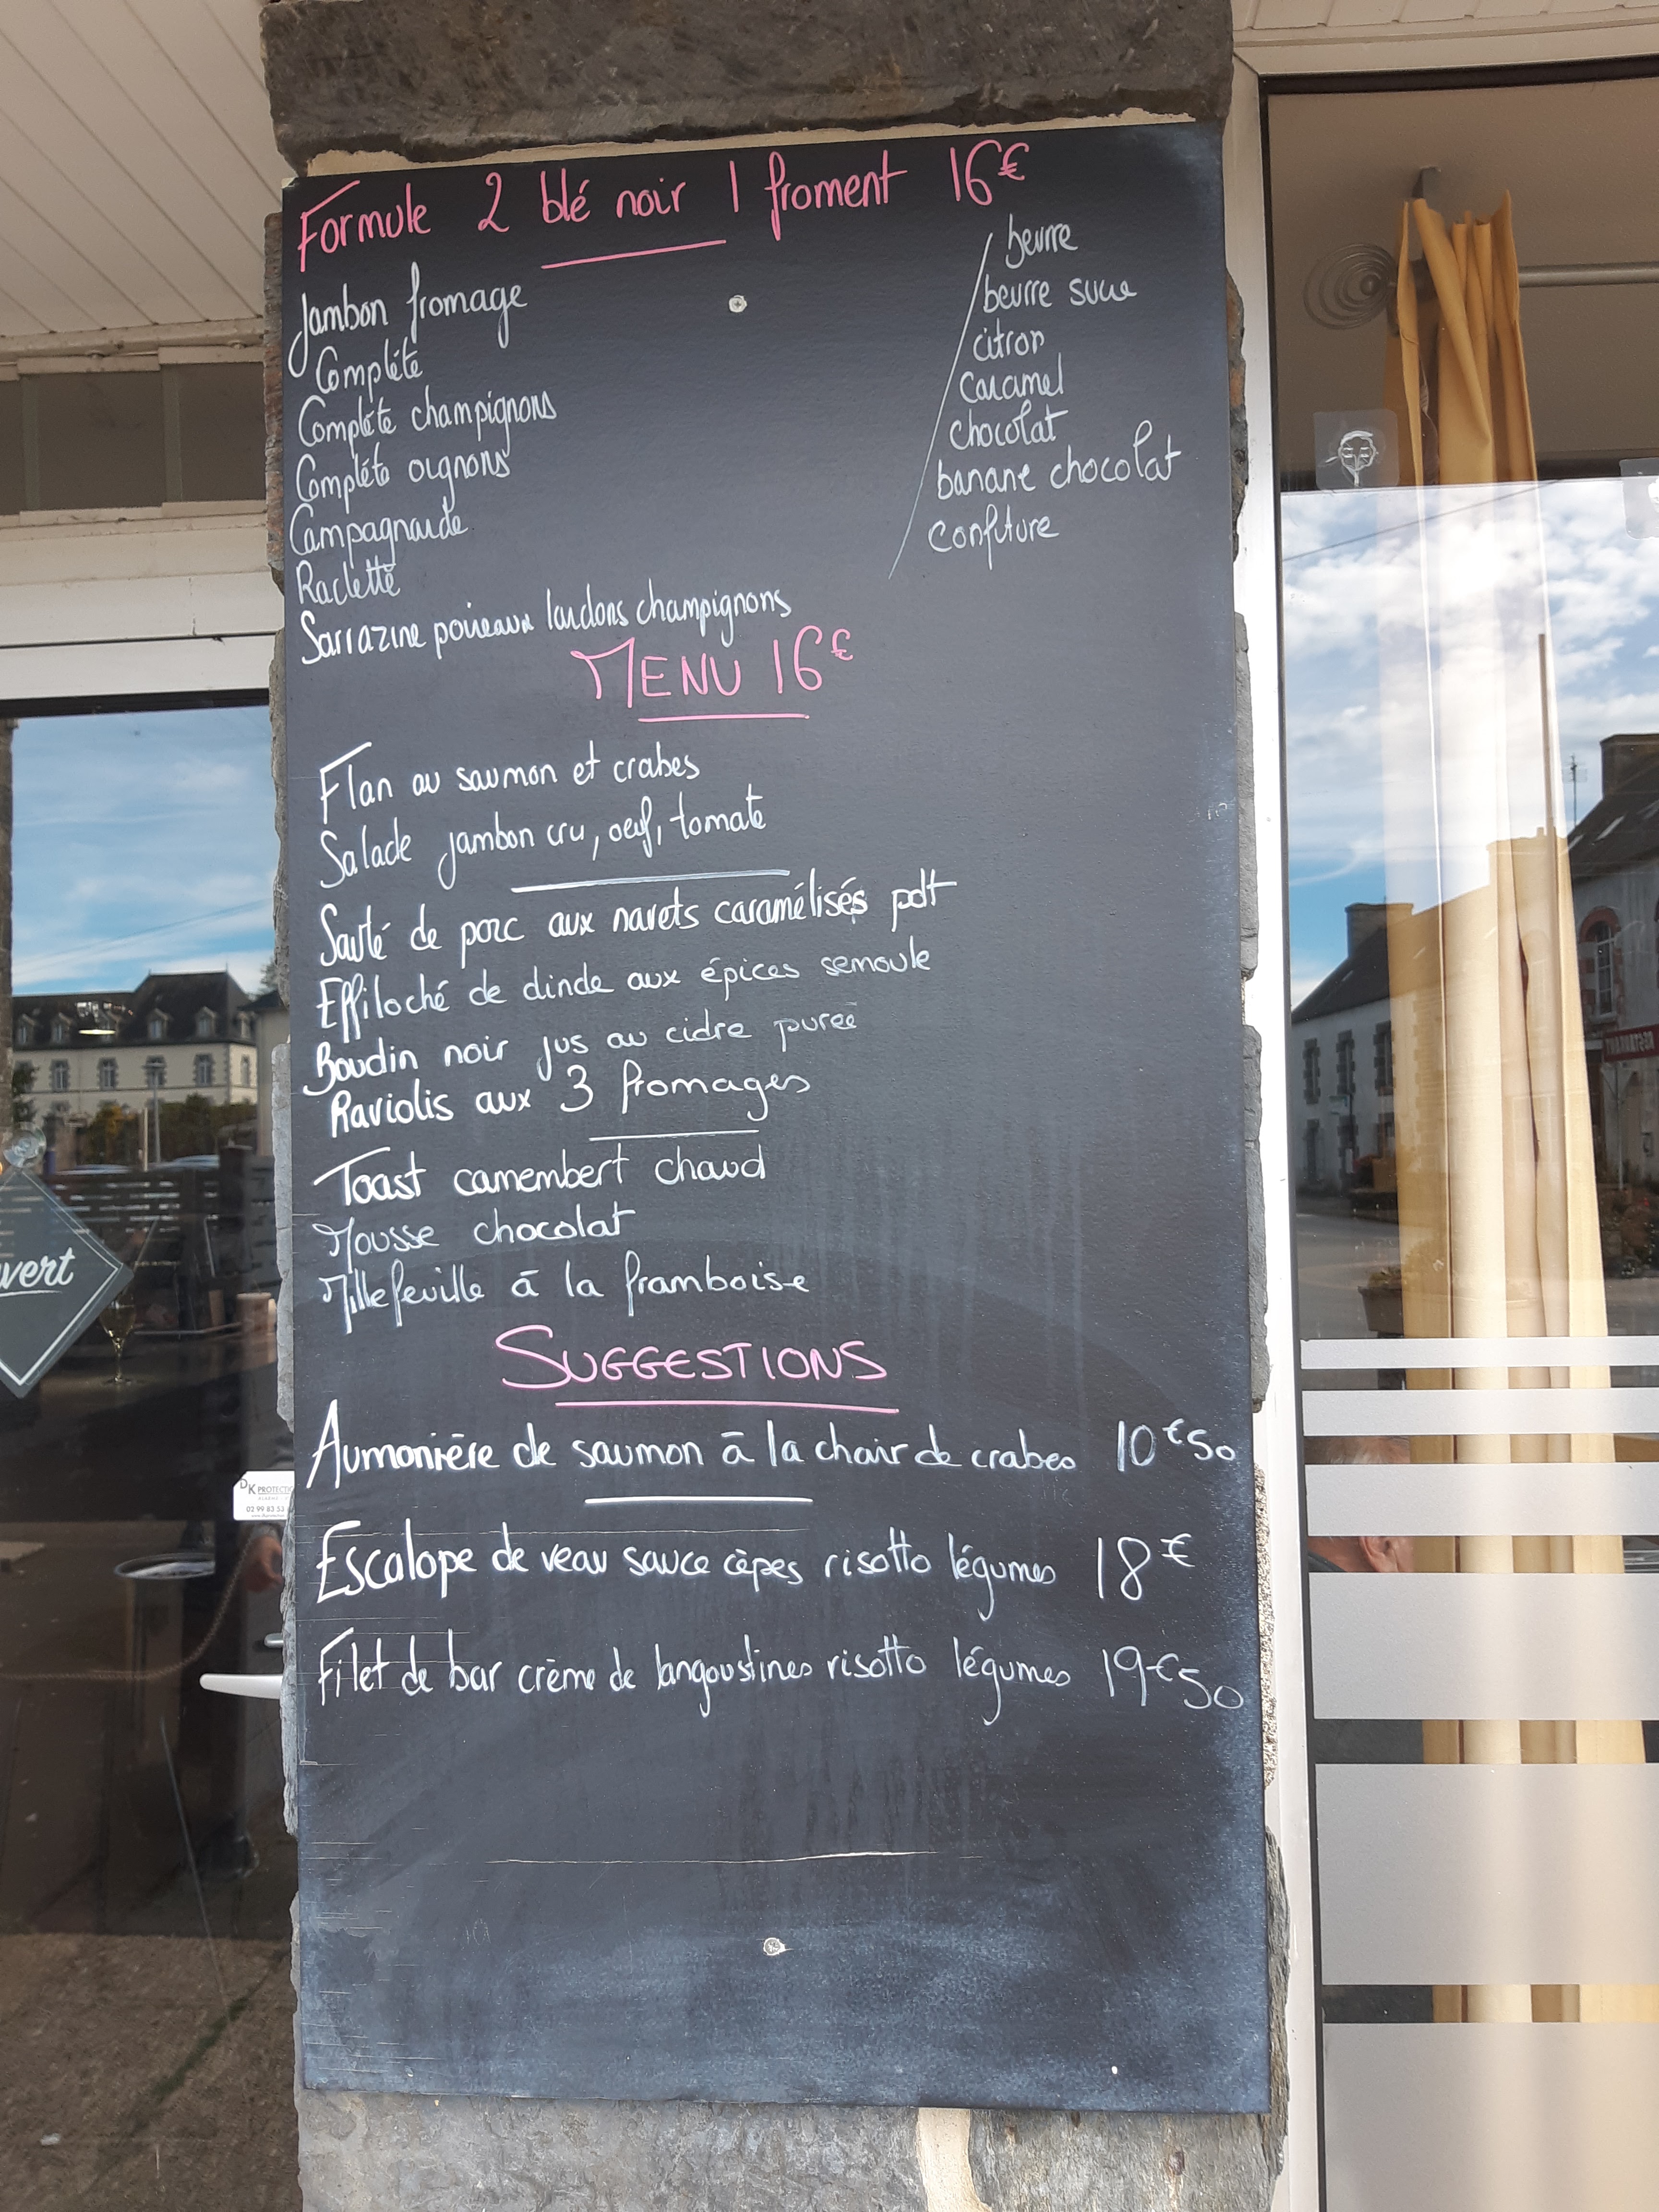 Formule 2 blé noir 1 froment 16€
Jambon fromage
Complète
Complète champignons
Complète oignons
Campagnarde
Raclette
Sarrazine poireaux lardons champignons
beurre
beurre sucre
citron
Caramel
chocolat
banane chocolat
Confiture
MENU 16€
Flan au saumon et crabes
Salade jambon cru, oeuf, tomate
Sauté de porc aux navets caramélisés pdt
Effiloché de dinde aux épices semoule
Boudin noir jus au cidre purée
Raviolis aux 3 fromages
Toast camembert chaud
Mousse chocolat
Millefeuille à la framboise
SUGGESTIONS
Aumonière de saumon à la chair de crabes 10€50
Escalope de veau sauce cèpes risotto légumes 18€
Filet de bar crème de langoustines risotto légumes 19€50
vert
DK PROTECTI
02 99 83 53
RESTAURANT